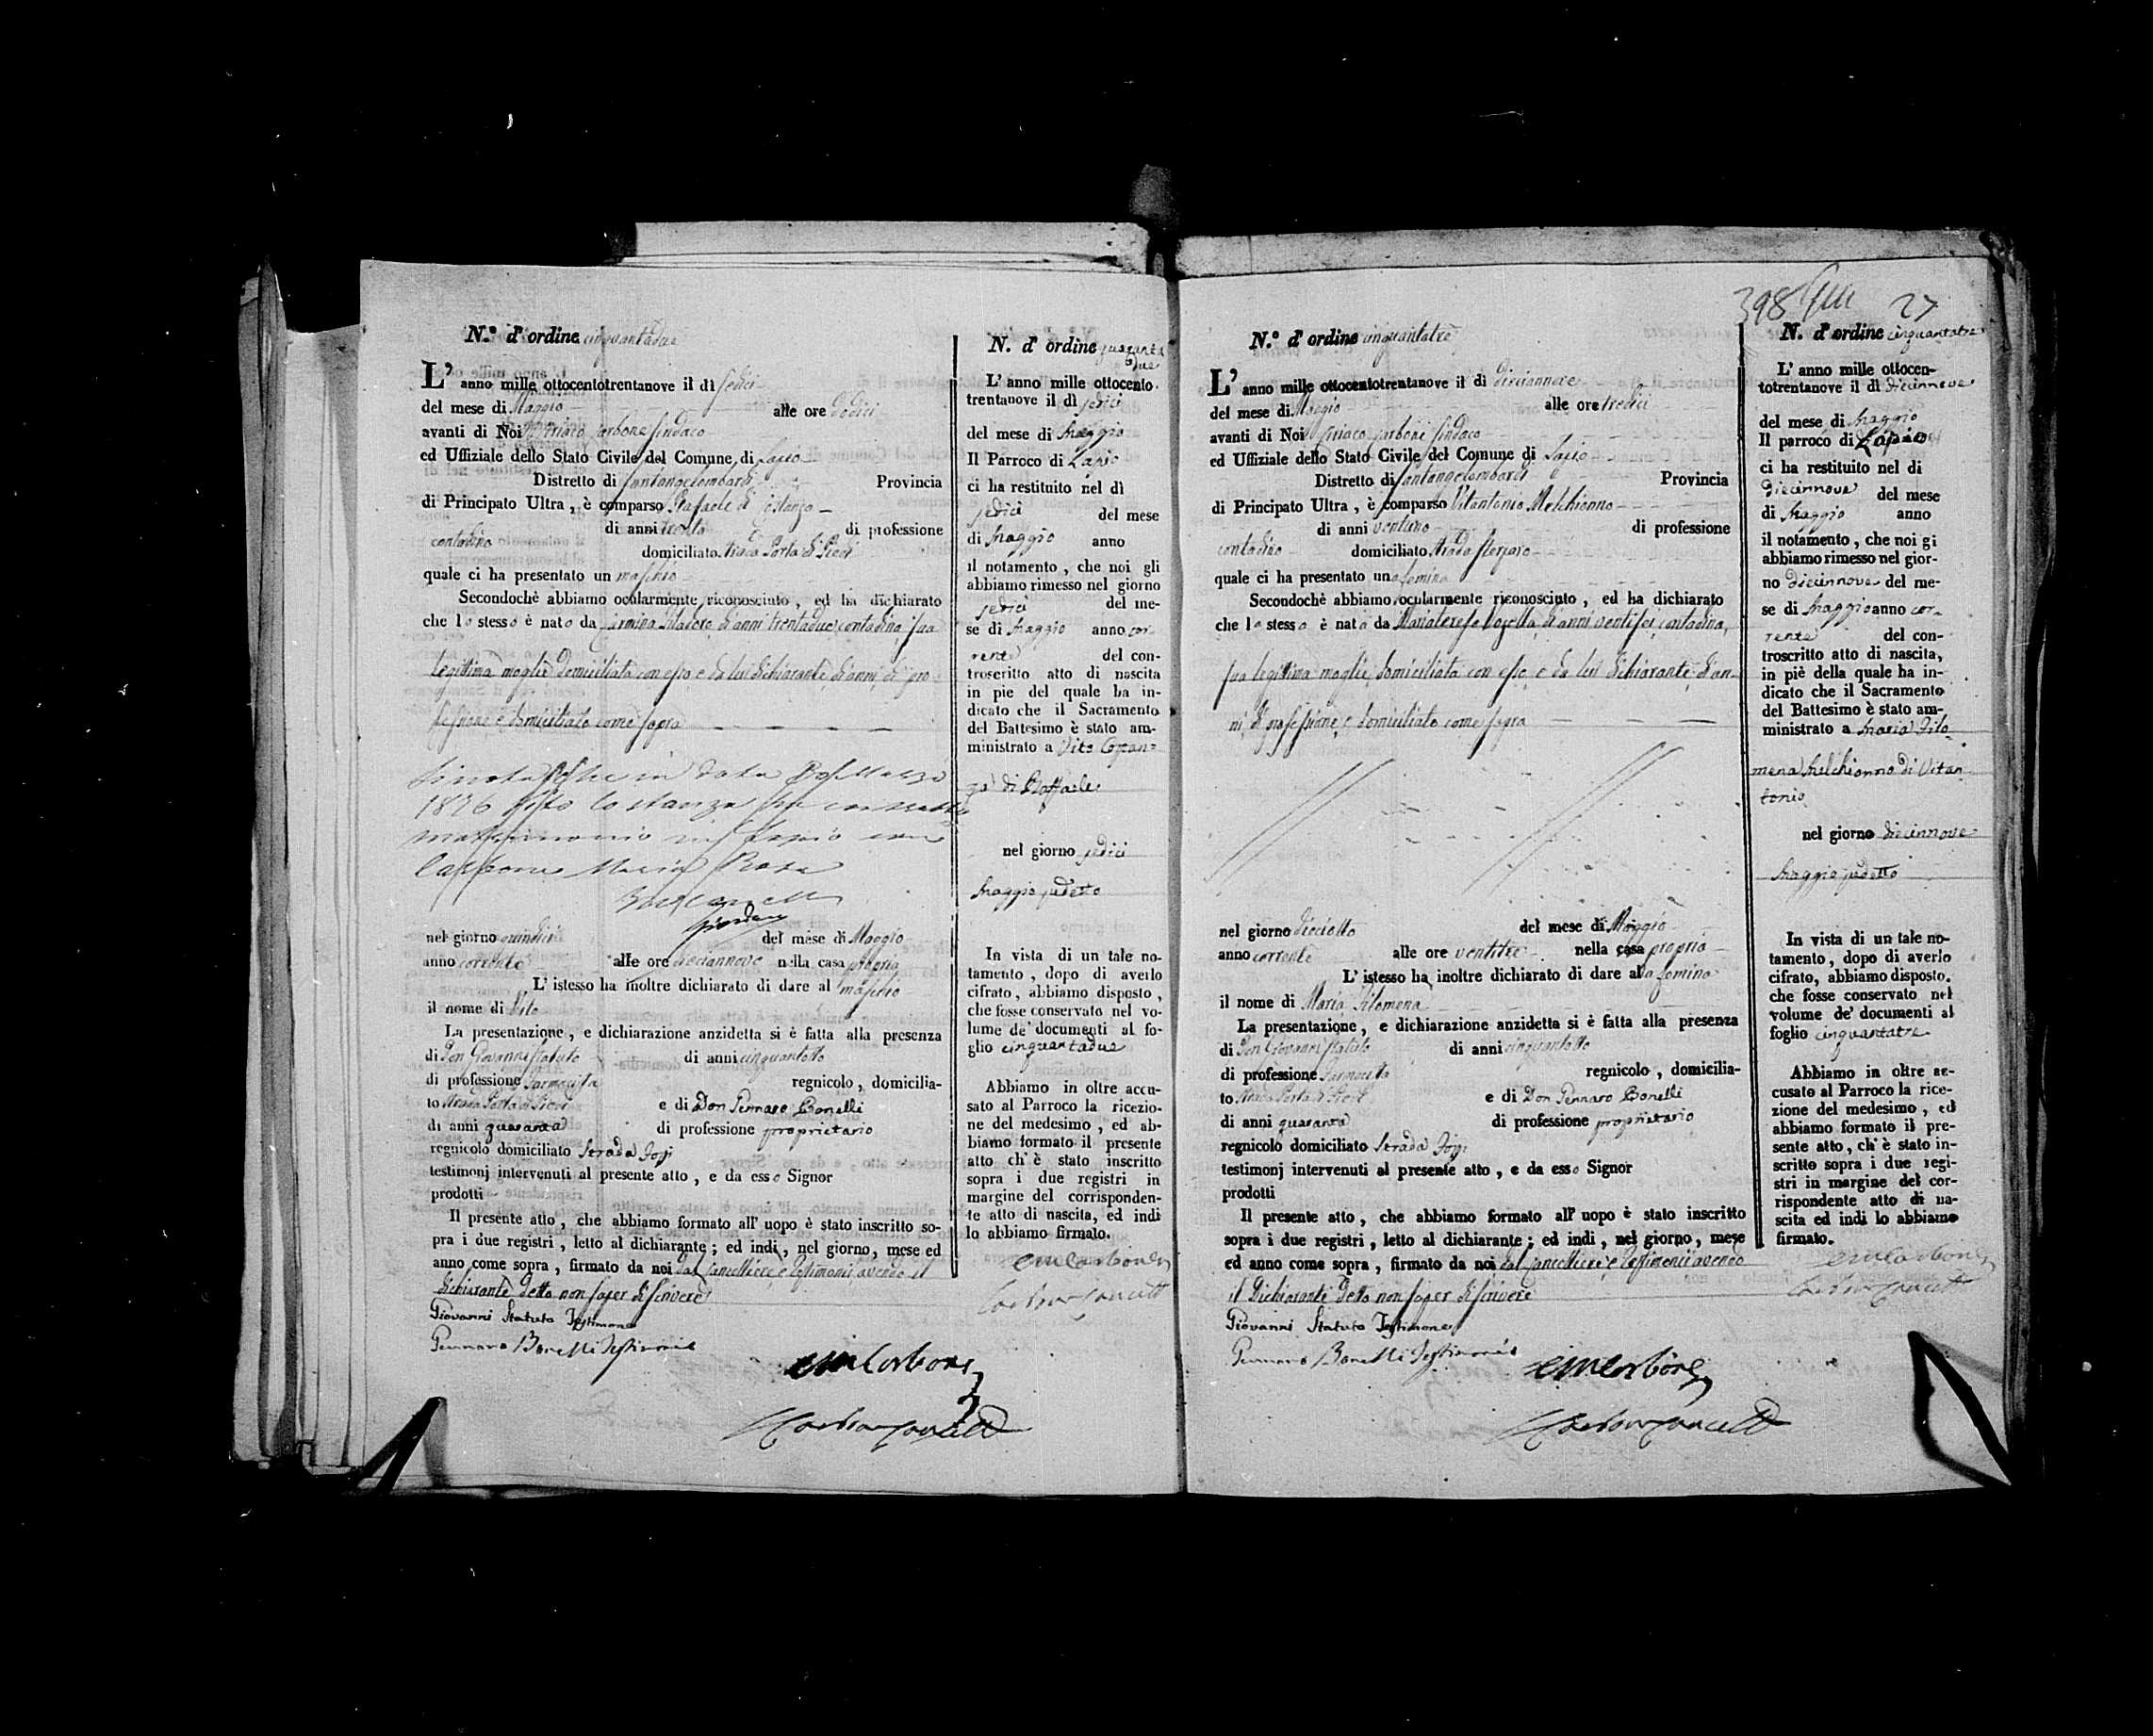 N.º d'ordine cinquantadue
L'anno mille ottocentotrentanove il dì sedici
del mese di Maggio alle ore dodici
avanti di Noi Ciriaco Carbone Sindaco
ed Uffiziale dello Stato Civile del Comune di Lapio
Distretto di Santangelombardi Provincia
di Principato Ultra, è comparso Rafaele di Costanzo
di anni trenta di professione
contadino domiciliato strada Porta di Piedi
quale ci ha presentato un maschio
Secondochè abbiamo ocularmente riconosciuto, ed ha dichiarato
che lo stesso è nato da di anni trentadue contadina sua
legittima moglie domiciliata con esso e da lui dichiarante di anni, di pro-
fessione e domiciliato come sopra
in data
1876 Vito Costanza ha contratto
matrimonio in Lapio con
Carbone Maria Rosa
nel giorno quindici del mese di Maggio
anno corrente alle ore diciannove nella casa propria
L'istesso ha inoltre dichiarato di dare al maschio
il nome di Vito
La presentazione, e dichiarazione anzidetta si è fatta alla presenza
di Don Giovanni Statuto di anni cinquantotto
di professione Farmacista regnicolo, domicilia-
to strada Porta di Piedi e di Don Gennaro Bonelli
di anni quaranta di professione proprietario
regnicolo domiciliato Strada
testimonj intervenuti al presente atto, e da esso Signor
prodotti
Il presente atto, che abbiamo formato all'uopo è stato inscritto so-
pra i due registri, letto al dichiarante; ed indi, nel giorno, mese ed
anno come sopra, firmato da noi dal Cancelliere e Testimonii avendo il
dichiarante detto non saper di scrivere
Giovanni Statuto Testimone
Gennaro Bonelli Testimonio
Carbone
Carbone Cancell
N. d'ordine quaranta
due
L'anno mille ottocento-
trentanove il dì sedici
del mese di Maggio
Il Parroco di Lapio
ci ha restituito nel dì
sedici del mese
di Maggio anno
il notamento, che noi gli
abbiamo rimesso nel giorno
sedici del me-
se di Maggio anno cor-
rente del con-
troscritto atto di nascita
in pie del quale ha in-
dicato che il Sacramento
del Battesimo è stato am-
ministrato a Vito Costan-
zo di Raffaele
nel giorno sedici
Maggio sudetto
In vista di un tale no-
tamento, dopo di averlo
cifrato, abbiamo disposto,
che fosse conservato nel vo-
lume de' documenti al fo-
glio cinquantadue
Abbiamo in oltre accu-
sato al Parroco la ricezio-
ne del medesimo, ed ab-
biamo formato il presente
atto ch'è stato inscritto
sopra i due registri in
margine del corrisponden-
te atto di nascita, ed indi
lo abbiamo firmato.
Carbone
Carbone Cancell
398 27
N.º d'ordine cinquantatre
L'anno mille ottocentotrentanove il dì diciannove
del mese di Maggio alle ore tredici
avanti di Noi Ciriaco Carbone Sindaco
ed Uffiziale dello Stato Civile del Comune di Lapio
Distretto di Santangelombardi Provincia
di Principato Ultra, è comparso Vitantonio Melchionno
di anni ventuno di professione
contadino domiciliato strada
quale ci ha presentato una femina
Secondochè abbiamo ocularmente riconosciuto, ed ha dichiarato
che la stessa è nata da Mariateresa di anni ventisei, contadina,
sua legittima moglie, domiciliata con esso e da lui dichiarante, di an-
ni, di professione, e domiciliato come sopra
nel giorno dieciotto del mese di Maggio
anno corrente alle ore ventitre nella casa propria
L'istesso ha inoltre dichiarato di dare alla femina
il nome di Maria Filomena
La presentazione, e dichiarazione anzidetta si è fatta alla presenza
di Don Giovanni Statuto di anni cinquantotto
di professione Farmacista regnicolo, domicilia-
to strada Porta di Piedi e di Don Gennaro Bonelli
di anni quaranta di professione proprietario
regnicolo domiciliato Strada
testimonj intervenuti al presente atto, e da esso Signor
prodotti
Il presente atto, che abbiamo formato all'uopo è stato inscritto
sopra i due registri, letto al dichiarante; ed indi, nel giorno, mese
ed anno come sopra, firmato da noi dal Cancelliere, e Testimonii avendo
il dichiarante detto non saper di scrivere
Giovanni Statuto Testimone
Gennaro Bonelli Testimonio
Carbone
Carbone Cancell
N. d'ordine cinquantatre
L'anno mille ottocen-
totrentanove il dì diecinnove
del mese di Maggio
Il parroco di Lapio
ci ha restituito nel di
diecinnove del mese
di Maggio anno
il notamento, che noi gi
abbiamo rimesso nel gior-
no diecinnove del me-
se di Maggio anno cor-
rente del con-
troscritto atto di nascita,
in piè della quale ha in-
dicato che il Sacramento
del Battesimo è stato am-
ministrato a Maria Filo-
mena Melchionno di Vitan
tonio
nel giorno diecinnove
Maggio sudetto
In vista di un tale no-
tamento, dopo di averlo
cifrato, abbiamo disposto,
che fosse conservato nel
volume de' documenti al
foglio cinquantatre
Abbiamo in oltre ac-
cusato al Parroco la rice-
zione del medesimo, ed
abbiamo formato il pre-
sente atto, ch'è stato in-
scritto sopra i due regi-
stri in margine del cor-
rispondente atto di na-
scita ed indi lo abbiamo
firmato.
Carbone
Carbone Cancell